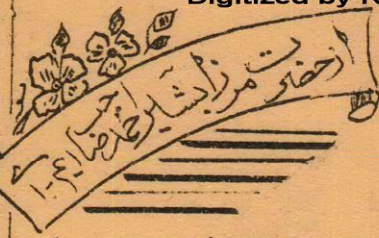 Digitized by
از حضرت مرزا بشیر احمد صاحب ایم۔اے